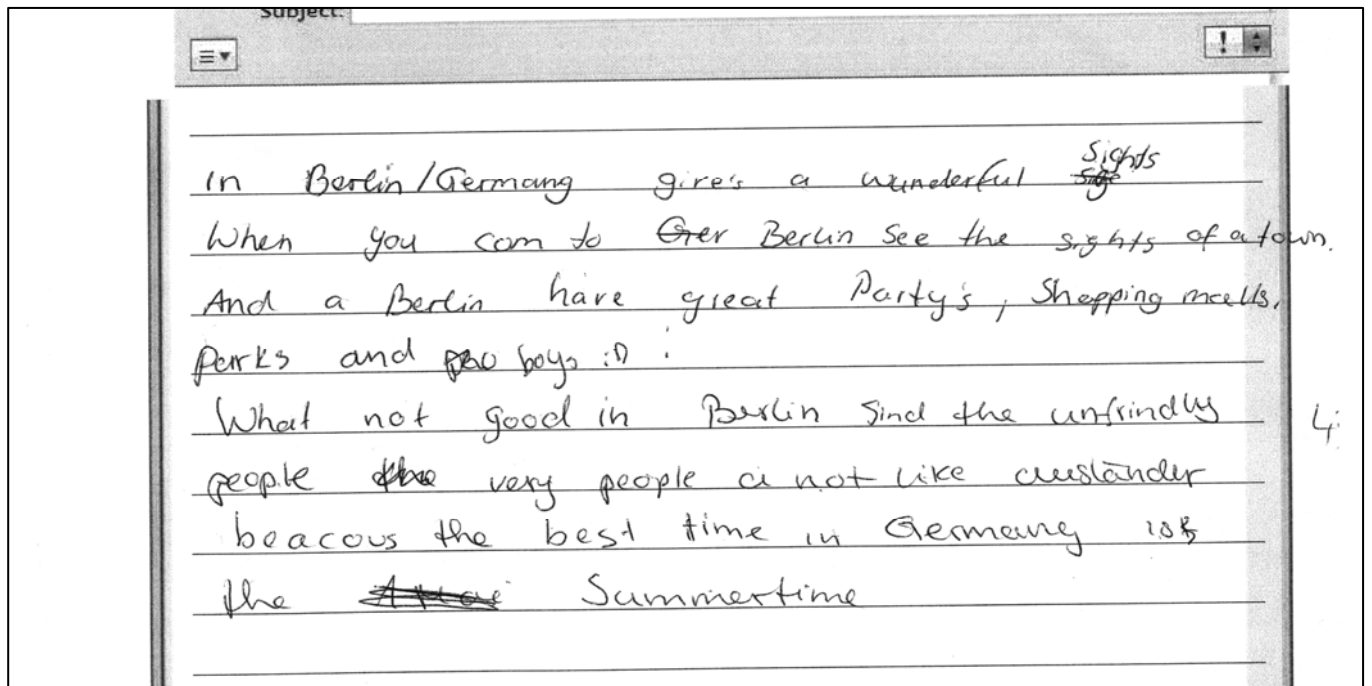 Subject:
!
In Berlin/Germany give's a wunderful Sights
When you com to Ger Berlin See the sights of a town.
And a Berlin have great Party's, Shopping malls,
Parks and boys :D
What not good in Berlin sind the unfrindly
people the very people a not like ausländer
beacous the best time in Germany is
the Summertime
4